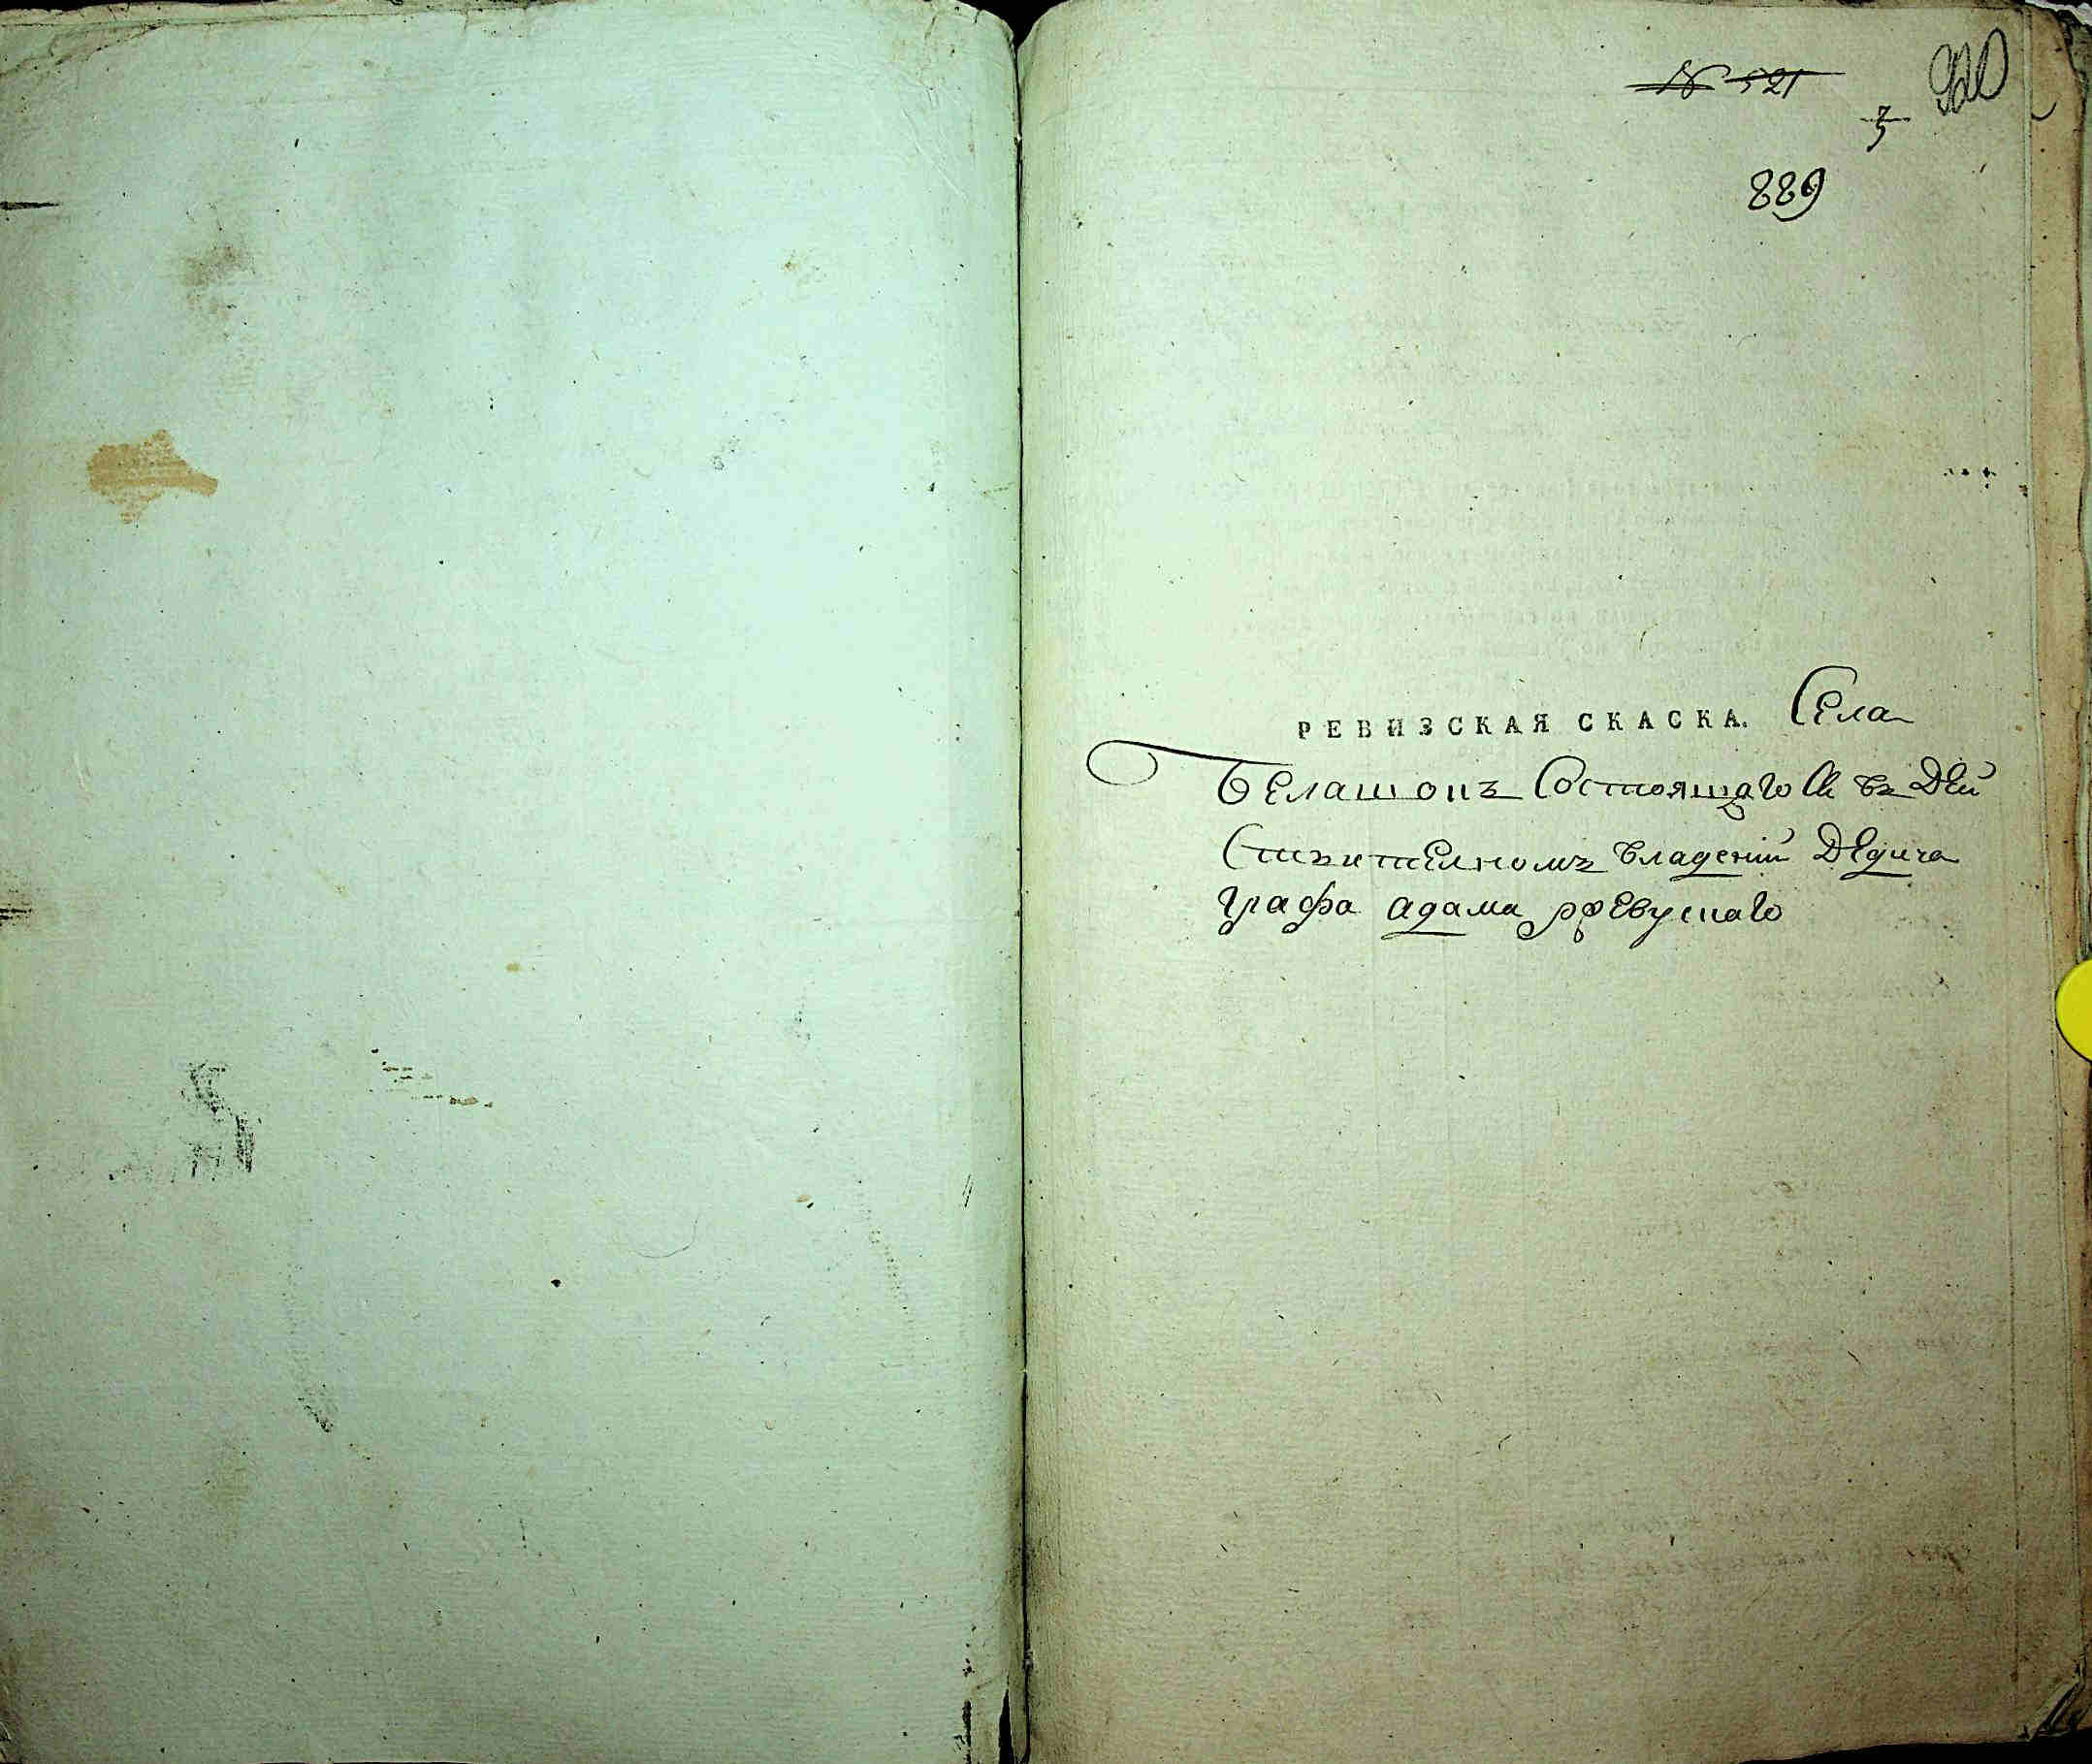 № 521
3
889
РЕВИЗСКАЯ СКАСКА. Села
Белашокъ Состоящагося въ Дей
Ствителномъ владении Дедича
графа адама ржевускаго